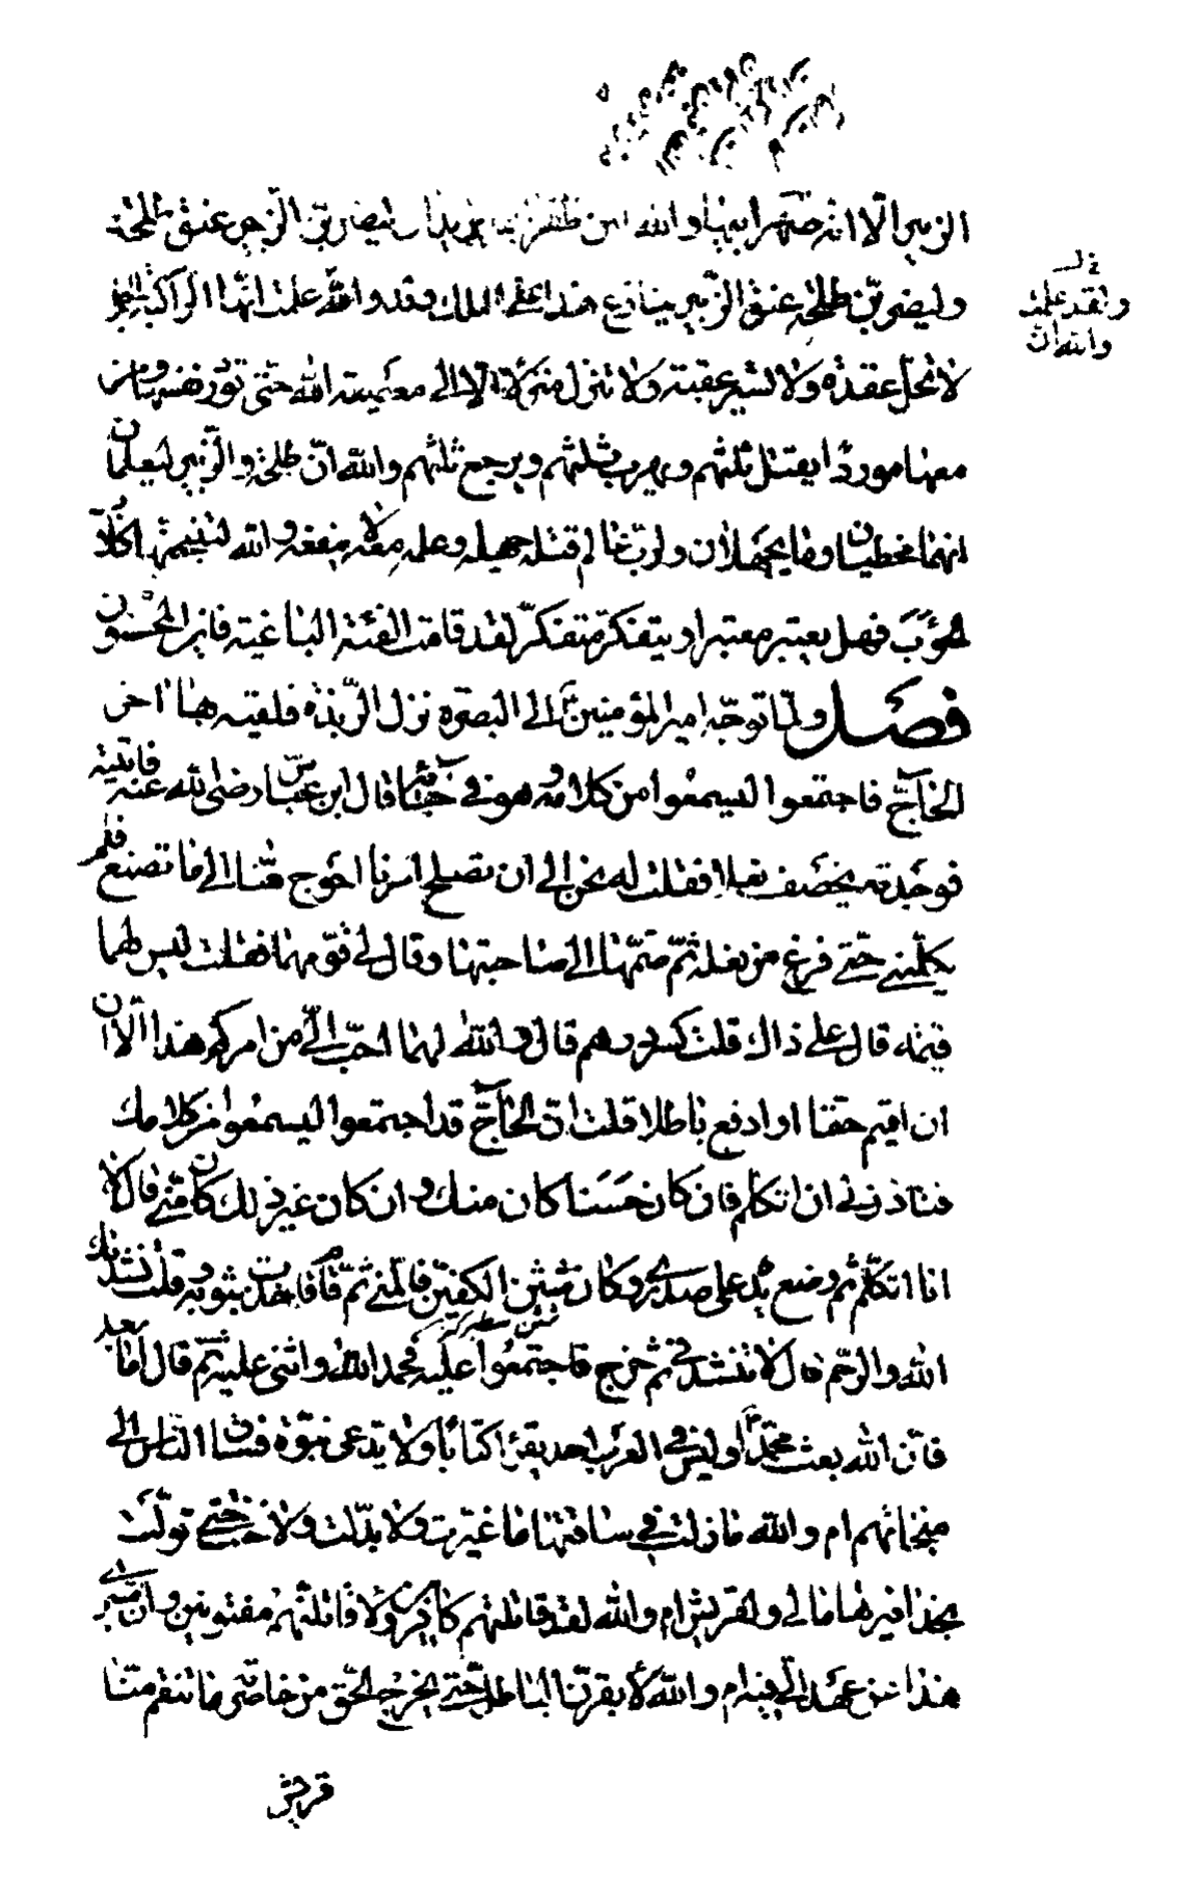 الزبير الا انه صهرا بيها والله لئن ظفرا بما يريدان ليضربن الزبير عنق طلحة
وليضربن طلحة عنق الزبير ينازع هذا على الملك وقد والله علمت انها الراكبة الجمل
ولقد علمت
والله ان
لا تحل عقدة ولا تسير عقبة ولا تنزل منزلا الا الى معصية الله حتى تورد نفسها ومن
معها موردا يقتل ثلثهم ويهرب ثلثهم ويرجع ثلثهم والله ان طلحة والزبير ليعلمان
انهما مخطيان وما يجهلان ولرب عالم قتله جهله وعلمه معه لا ينفعه والله لتنبحنها كلاب
الحوءب فهل يعتبر معتبر او يتفكر متفكر لقد قامت الفئة الباغية فاين المحسنون
فصل ولما توجه امير المؤمنين الى البصرة نزل الربذة فلقيه بها اخر
الحاج فاجتمعوا ليسمعوا من كلامه وهو في خبائه قال ابن عباس رضى الله عنه فاتيته
فوجدته يخصف نعلا فقلت له نحن الى ان تصلح امرنا احوج منا الى ما تصنع فلم
يكلمني حتى فرغ من نعله ثم ضمها الى صاحبتها وقال لي قومهما فقلت ليس لهما
قيمة قال على ذاك قلت كسر درهم قال والله لهما احب الى من امركم هذا الا ان
ان اقيم حقا او ادفع باطلا قلت ان الحاج قد اجتمعوا ليسمعوا من كلامك
فتاذن لي ان اتكلم فان كان حسنا كان منك وان كان غير ذلك كان مني قال لا
انا اتكلم ثم وضع يده على صدري وكان شثن الكفين فالمني ثم قام فاخذت بثوبه وقلت نشدتك
الله والرحم قال لا تنشدني ثم خرج فاجتمعوا عليه فحمد الله واثنى عليه ثم قال اما بعد
فان الله بعث محمدا وليس في العرب احد يقرء كتابا ولا يدعى نبوة فساق الناس الى
منجاتهم ام والله ما زلت في ساقتها ما غيرت ولا بدلت ولا خنت حتى تولت
بحذافيرها ما لي ولقريش ام والله لقد قاتلتهم كافرين ولا قاتلنهم مفتونين وان مسيرى
هذا عن عهد الى فيه ام والله لابقرن الباطل حتى يخرج الحق من خاصرته ما تنقم منا
قريش